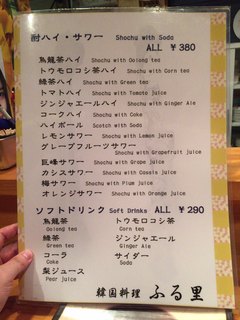 酎ハイ・サワー Shochu with Soda
ALL ¥380
烏龍茶ハイ Shochu with Oolong tea
トウモロコシ茶ハイ Shochu with Corn tea
緑茶ハイ Shochu with Green tea
トマトハイ Shochu with Tomato juice
ジンジャエールハイ Shochu with Ginger Ale
コークハイ Shochu with Coke
ハイボール Scotch with Soda
レモンサワー Shochu with Lemon juice
グレープフルーツサワー
Shochu with Grapefruit juice
巨峰サワー Shochu with Grape juice
カシスサワー Shochu with Cassis juice
梅サワー Shochu with Plum juice
オレンジサワー Shochu with Orange juice
ソフトドリンク Soft Drinks ALL ¥290
烏龍茶 トウモロコシ茶
Oolong tea Corn tea
緑茶 ジンジャエール
Green tea Ginger Ale
コーラ サイダー
Coke Soda
梨ジュース
Pear juice
韓国料理 ふる里